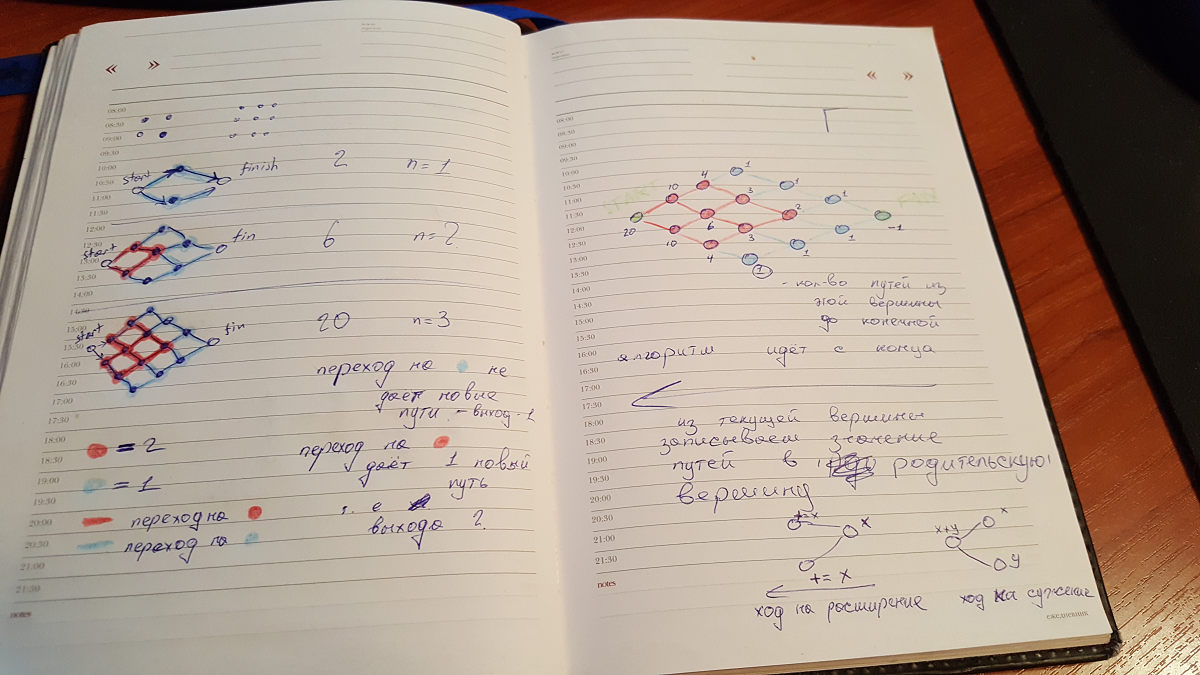 « »
08:00
08:30
09:00
09:30
10:00
10:30
11:00
11:30
12:00
12:30
13:00
13:30
14:00
14:30
15:00
15:30
16:00
16:30
17:00
17:30
18:00
18:30
19:00
19:30
20:00
20:30
21:00
21:30
notes
start finish 2 n=1
start fin 6 n=2
start fin 20 n=3
переход на не
даёт новые
пути - выход - 1
= 2
переход на
даёт 1 новый
путь
= 1
т. е
выхода 2
переход на
переход на
« »
08:00
08:30
09:00
09:30
10:00
10:30
11:00
11:30
12:00
12:30
13:00
13:30
14:00
14:30
15:00
15:30
16:00
16:30
17:00
17:30
18:00
18:30
19:00
19:30
20:00
20:30
21:00
21:30
notes
START
1
4
1
10
3
1
2
20
6
-1
10
3
1
4
1
1
- кол-во путей из
этой вершины
до конечной
алгоритм идёт с конца
из текущей вершины
записываем значение
путей в родительскую
вершину
+= x
x
x+y
x
y
+= x
ход на росширение
ход на сужение
ежедневник